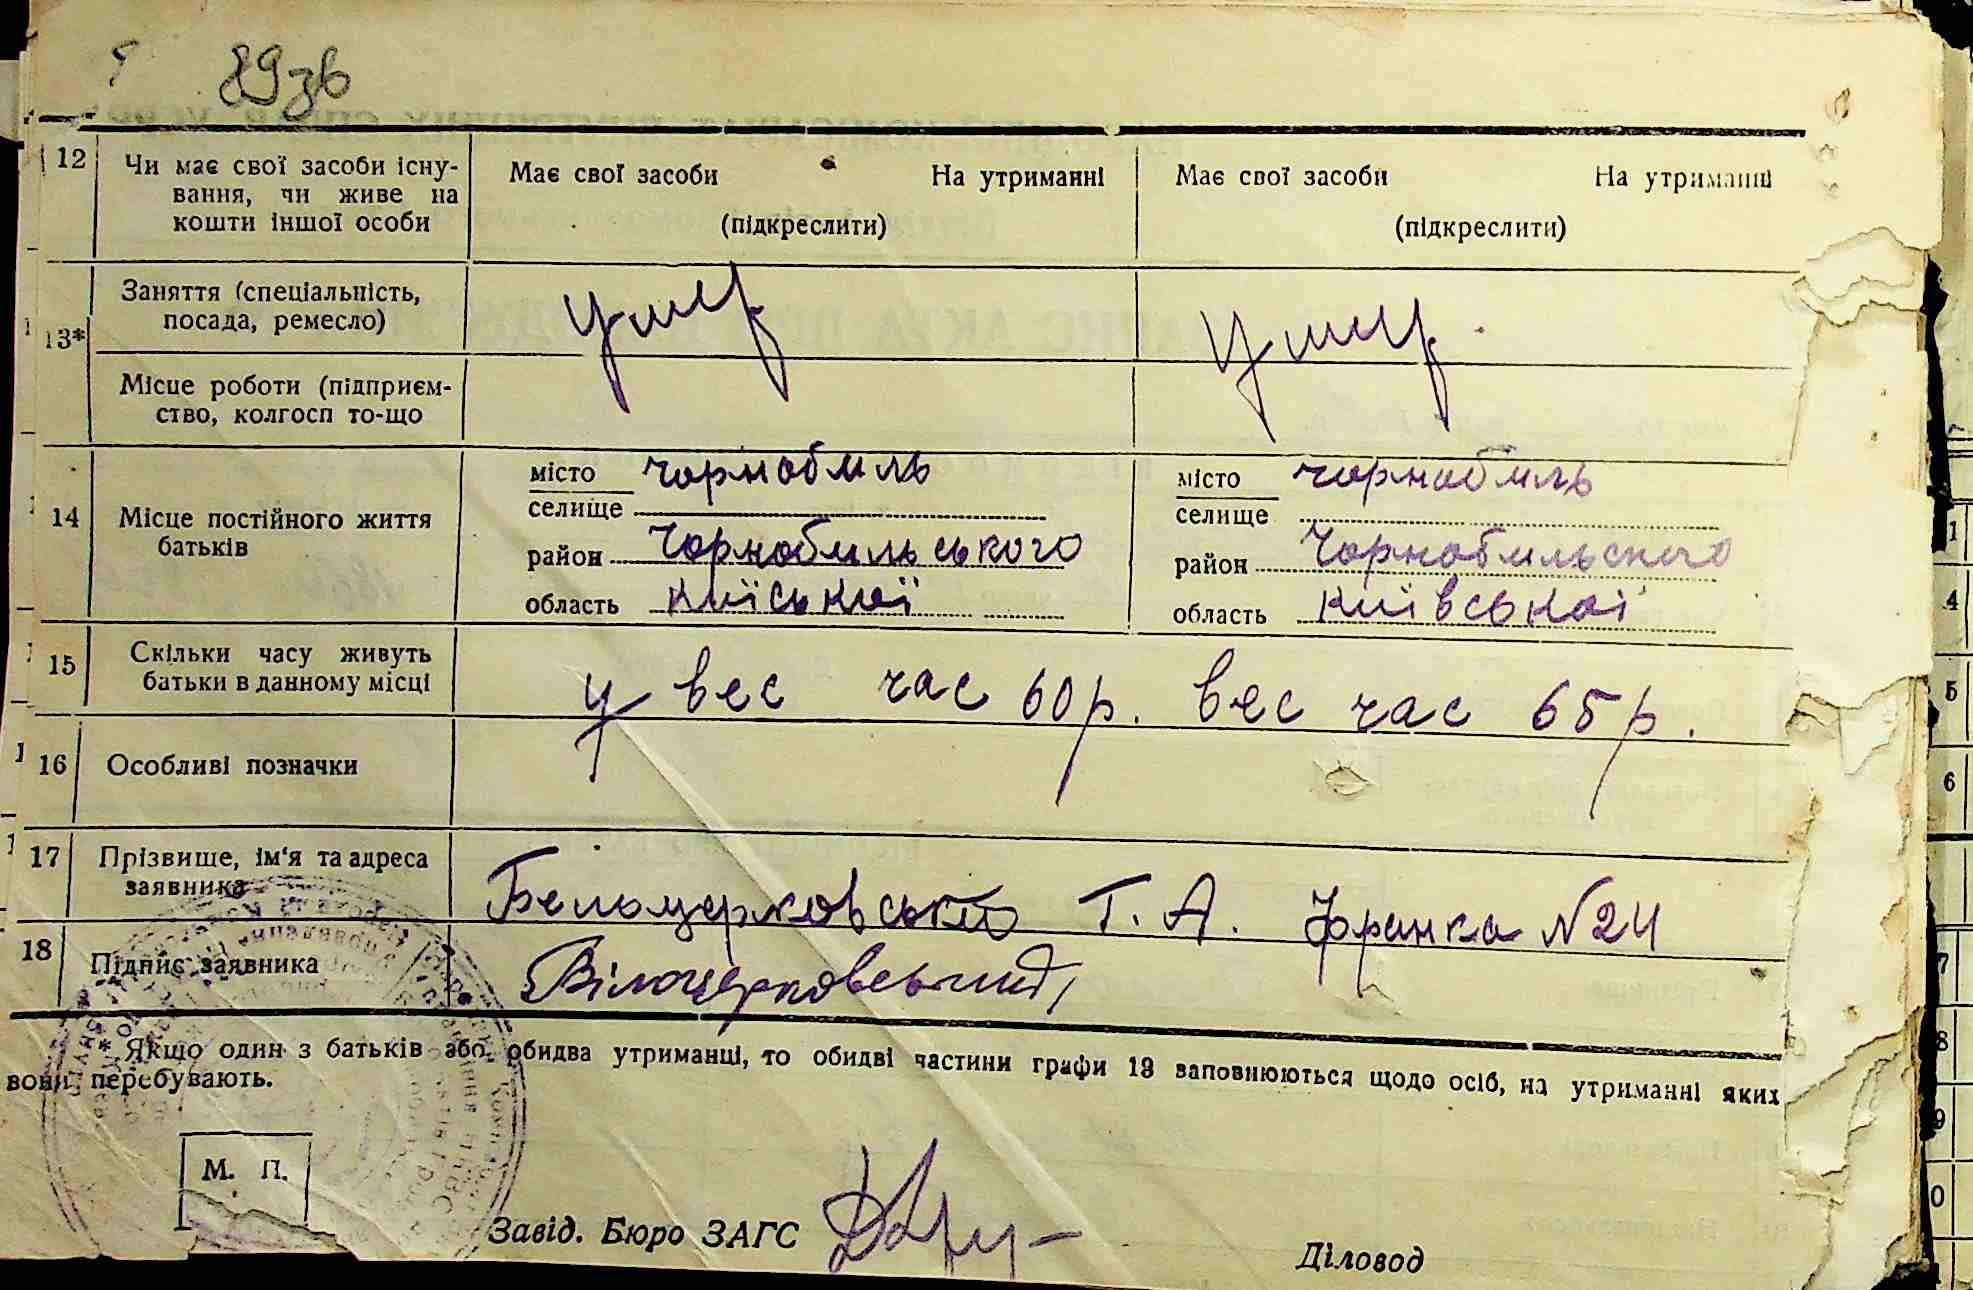 89зв
12 Чи має свої засоби існу- Має свої засоби На утриманні Має свої засоби На утриманні
вання, чи живе на
кошти іншої особи (підкреслити) (підкреслити)
Заняття (спеціальність, умер умер
посада, ремесло)
13*
Місце роботи (підприєм-
ство, колгосп то-що
місто чорнобиль місто чорнобиль
14 Місце постійного життя селище селище
батьків район Чорнобильського район Чорнобильского
область киїської область київської
15 Скільки часу живуть
батьки в данному місці у вес час 60 р. вес час 65 р.
16 Особливі позначки
17 Прізвище, ім'я та адреса
заявника Белоцерковський Г. А. Франка №24
18 Підпис заявника Білоцерковський
* Якщо один з батьків або обидва утриманці, то обидві частини графи 13 заповнюються щодо осіб, на утриманні яких
вони перебувають.
М. П.
Завід. Бюро ЗАГС
Діловод